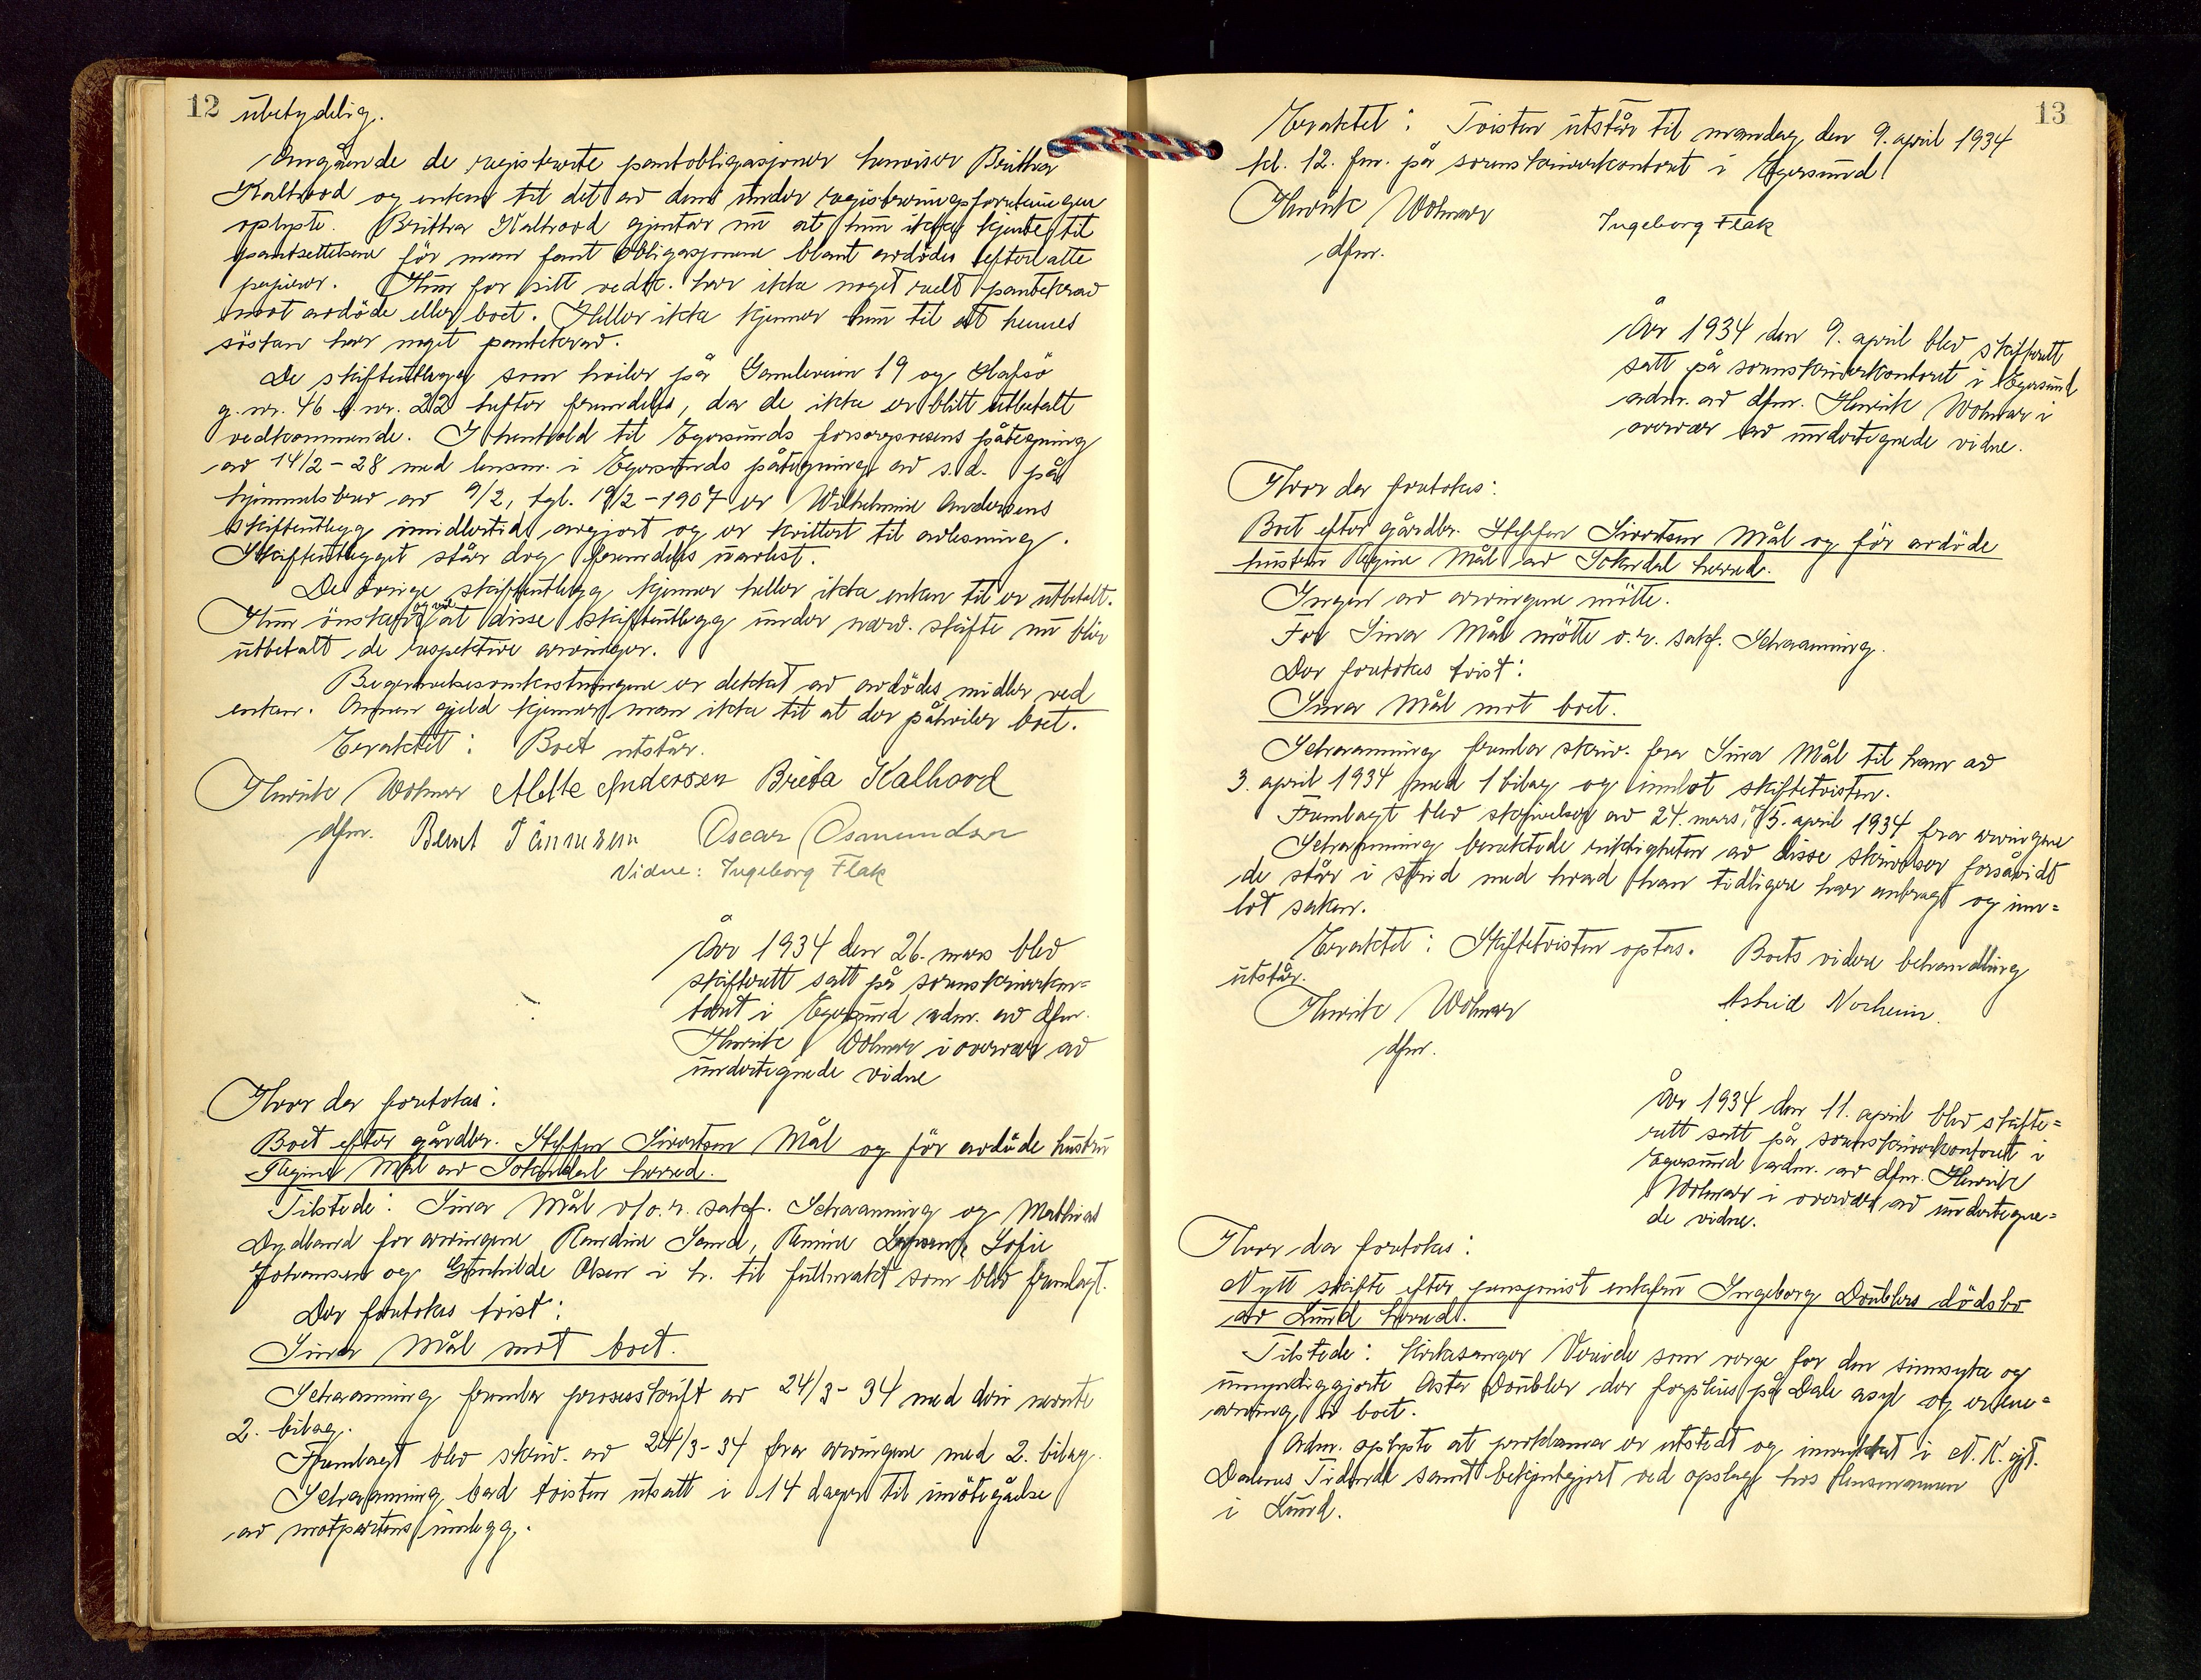 12
ubetydelig.
Angående de registrerte pantobligasjoner henviser Brittha
Kalhovd og enken til det av dem under registreringsforretningen
oplyste. Brittha Kalhovd gjentar nu at hun ikke kjente til
pantsettelsene før man fant obligasjonene blant avdødes efterlatte
papirer. Hun for sitt vedk. har ikke noget reelt pantekrav
mot avdøde eller boet. Heller ikke kjenner hun til at hennes
søsken har noget pantekrav.
De skifteutlegg som hviler på Gamleveien 19 og Hafsö
g.nr. 46 b.nr. 22 hefter fremdeles, da de ikke er blitt utbetalt
vedkommende. I henhold til Egersunds forsorgsvesens påtegning
av 14/2-28 med lensm. i Egersunds påtegning av s.d. på
hjemmelsbrev av 9/2, tgl. 19/2-1907 er Wilhelmine Andersens
skifteutlegg imidlertid avgjort og er kvittert til avlesning.
Skifteutlegget står dog fremdeles uavlest.
De övrige skifteutlegg kjenner heller ikke enken til er utbetalt.
Hun ønsker at disse skifteutlegg under nærv. skifte nu blir
utbetalt de respektive arvinger.
Begravelsesomkostningene er dekket av avdødes midler ved
enken. Annen gjeld kjenner man ikke til at der påhviler boet.
Eraktet: Boet utstår.
Henrik Wolmar Alette Andersen Brita Kalhovd
dfm. Bernt Tönnesen Oscar Osmundsen
Vidne: Ingeborg Flak
År 1934 den 26. mars blev
skifterett satt på sorenskriverkon=
toret i Egersund adm. av dfm.
Henrik Wolmar i overvær av
undertegnede vidne
Hvor da foretokes:
Boet efter gårdbr. Steffen Sivertsen Mål og för avdøde hustru
Regine Mål av Sokndal herred.
Tilstede: Sina Mål v/o.r. sakf. Schaanning og Mathias
Dydland for arvingene Randine Sand, Ramine Sofie
Johansen og Gunhilde Olsen i h. til fullmakt som blev fremlagt.
Der foretokes tvist:
Sina Mål mot boet.
Schaanning fremla prosesskrift av 24/3-34 med deri nevnte
2. bilag.
Fremlagt blev skriv. av 24/3-34 fra arvingene med 2. bilag.
Schaanning bad tvisten utsatt i 14 dager til imötegåelse
av motpartens innlegg.
13
Eraktet: Tvisten utstår til mandag den 9. april 1934
kl. 12. fm. på sorenskriverkontoret i Egersund.
Henrik Wolmar Ingeborg Flak
dfm.
År 1934 den 9. april blev skifterett
satt på sorenskriverkontoret i Egersund
adm. av dfm. Henrik Wolmar i
overvær av undertegnede vidne.
Hvor da foretokes:
Boet efter gårdbr. Steffen Sivertsen Mål og för avdöde
hustru Regine Mål av Sokndal herred.
Ingen av arvingene mötte.
For Sina Mål mötte o.r. sakf. Schaanning.
Der foretokes tvist:
Sina Mål mot boet.
Schaanning fremla skriv. fra Sina Mål til ham av
3. april 1934 med 1 bilag og innlot skiftetvisten.
Fremlagt blev skrivelser av 24. mars, 5. april 1934 fra arvingene
Schaanning benektede riktigheten av disse skrivelser forsåvidt
de står i strid med hvad han tidligere har anbragt og inn=
lot saken.
Eraktet: Skiftetvisten optas. Boets videre behandling
utstår.
Henrik Wolmar Astrid Norheim.
dfm.
År 1934 den 11. april blev skifte=
rett satt på sorenskriverkontoret i
Egersund adm. av dfm. Henrik
Wolmar i overvær av undertegne=
de vidne.
Hvor da foretokes:
Nytt skifte efter pensjonist enkefru Ingeborg Doublers dödsbo
av Lund herred.
Tilstede: Kirkesanger som verge for den sinnsyke og
umyndiggjorte Aster Doubler der forpleies på Dale asyl og er ene=
arving i boet.
Adm. oplyste at proklama er utstedt og innrykket i N. K. gjt.
Dalenes Tidende samt bekjentgjort ved opslag hos lensmannen
i Lund.